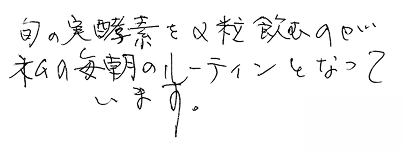 旬の実酵素を2粒飲むのが
私の毎朝のルーティンとなって
います。